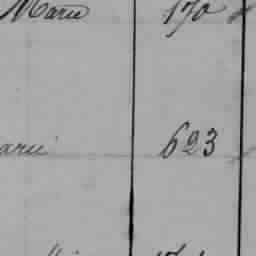 Marie 170
arie 623